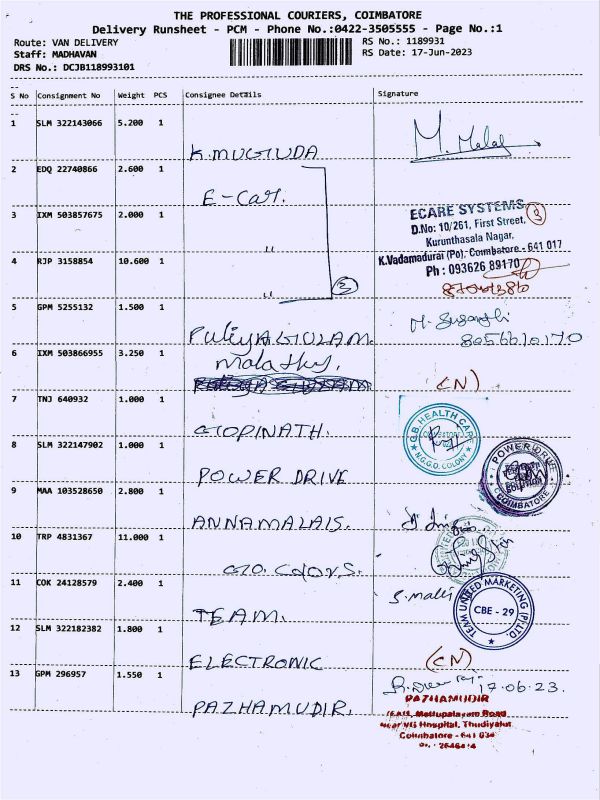 THE PROFESSIONAL COURIERS, COIMBATORE
Delivery Runsheet - PCM - Phone No.:0422-3505555 - Page No.:1
Route: VAN DELIVERY
RS No.: 1189931
Staff: MADHAVAN
RS Date: 17-Jun-2023
DRS No.: DCJB118993101
S No Consignment No Weight PCS Consignee Details Signature
1 SLM 322143066 5.200 1
K.MUGIUDA
2 EDQ 22740866 2.600 1
E-Car.
3 IXM 503857675 2.000 1
"
ECARE SYSTEMS 3
D.No: 10/261, First Street,
Kurunthasala Nagar,
K.Vadamadurai (Po), Coimbatore - 641 017
Ph : 093626 89170
4 RJP 3158854 10.600 1
" 3
5 GPM 5255132 1.500 1
PuliyAGIULAM
8056610170
6 IXM 503866955 3.250 1
Malathy.
(CN)
7 TNJ 640932 1.000 1
GIOPINATH.
G.B. HEALTH CARE
N.G.G.O. COLONY
8 SLM 322147902 1.000 1
POWER DRIVE
POWER DRIVE
COIMBATORE
9 MAA 103528650 2.800 1
ANNAMALAIS.
10 TRP 4831367 11.000 1
GIO. Colors.
11 COK 24128579 2.400 1
TEAM.
S. mali
TEAM UNITED MARKETING (P) LTD
CBE - 29
12 SLM 322182382 1.800 1
ELECTRONIC
(CN)
13 GPM 296957 1.550 1
PAZHAMUDIR.
17.06.23.
PAZHAMUDIR
Mettupalayam Road
Near VG Hospital, Thudiyalur
Coimbatore - 641 034